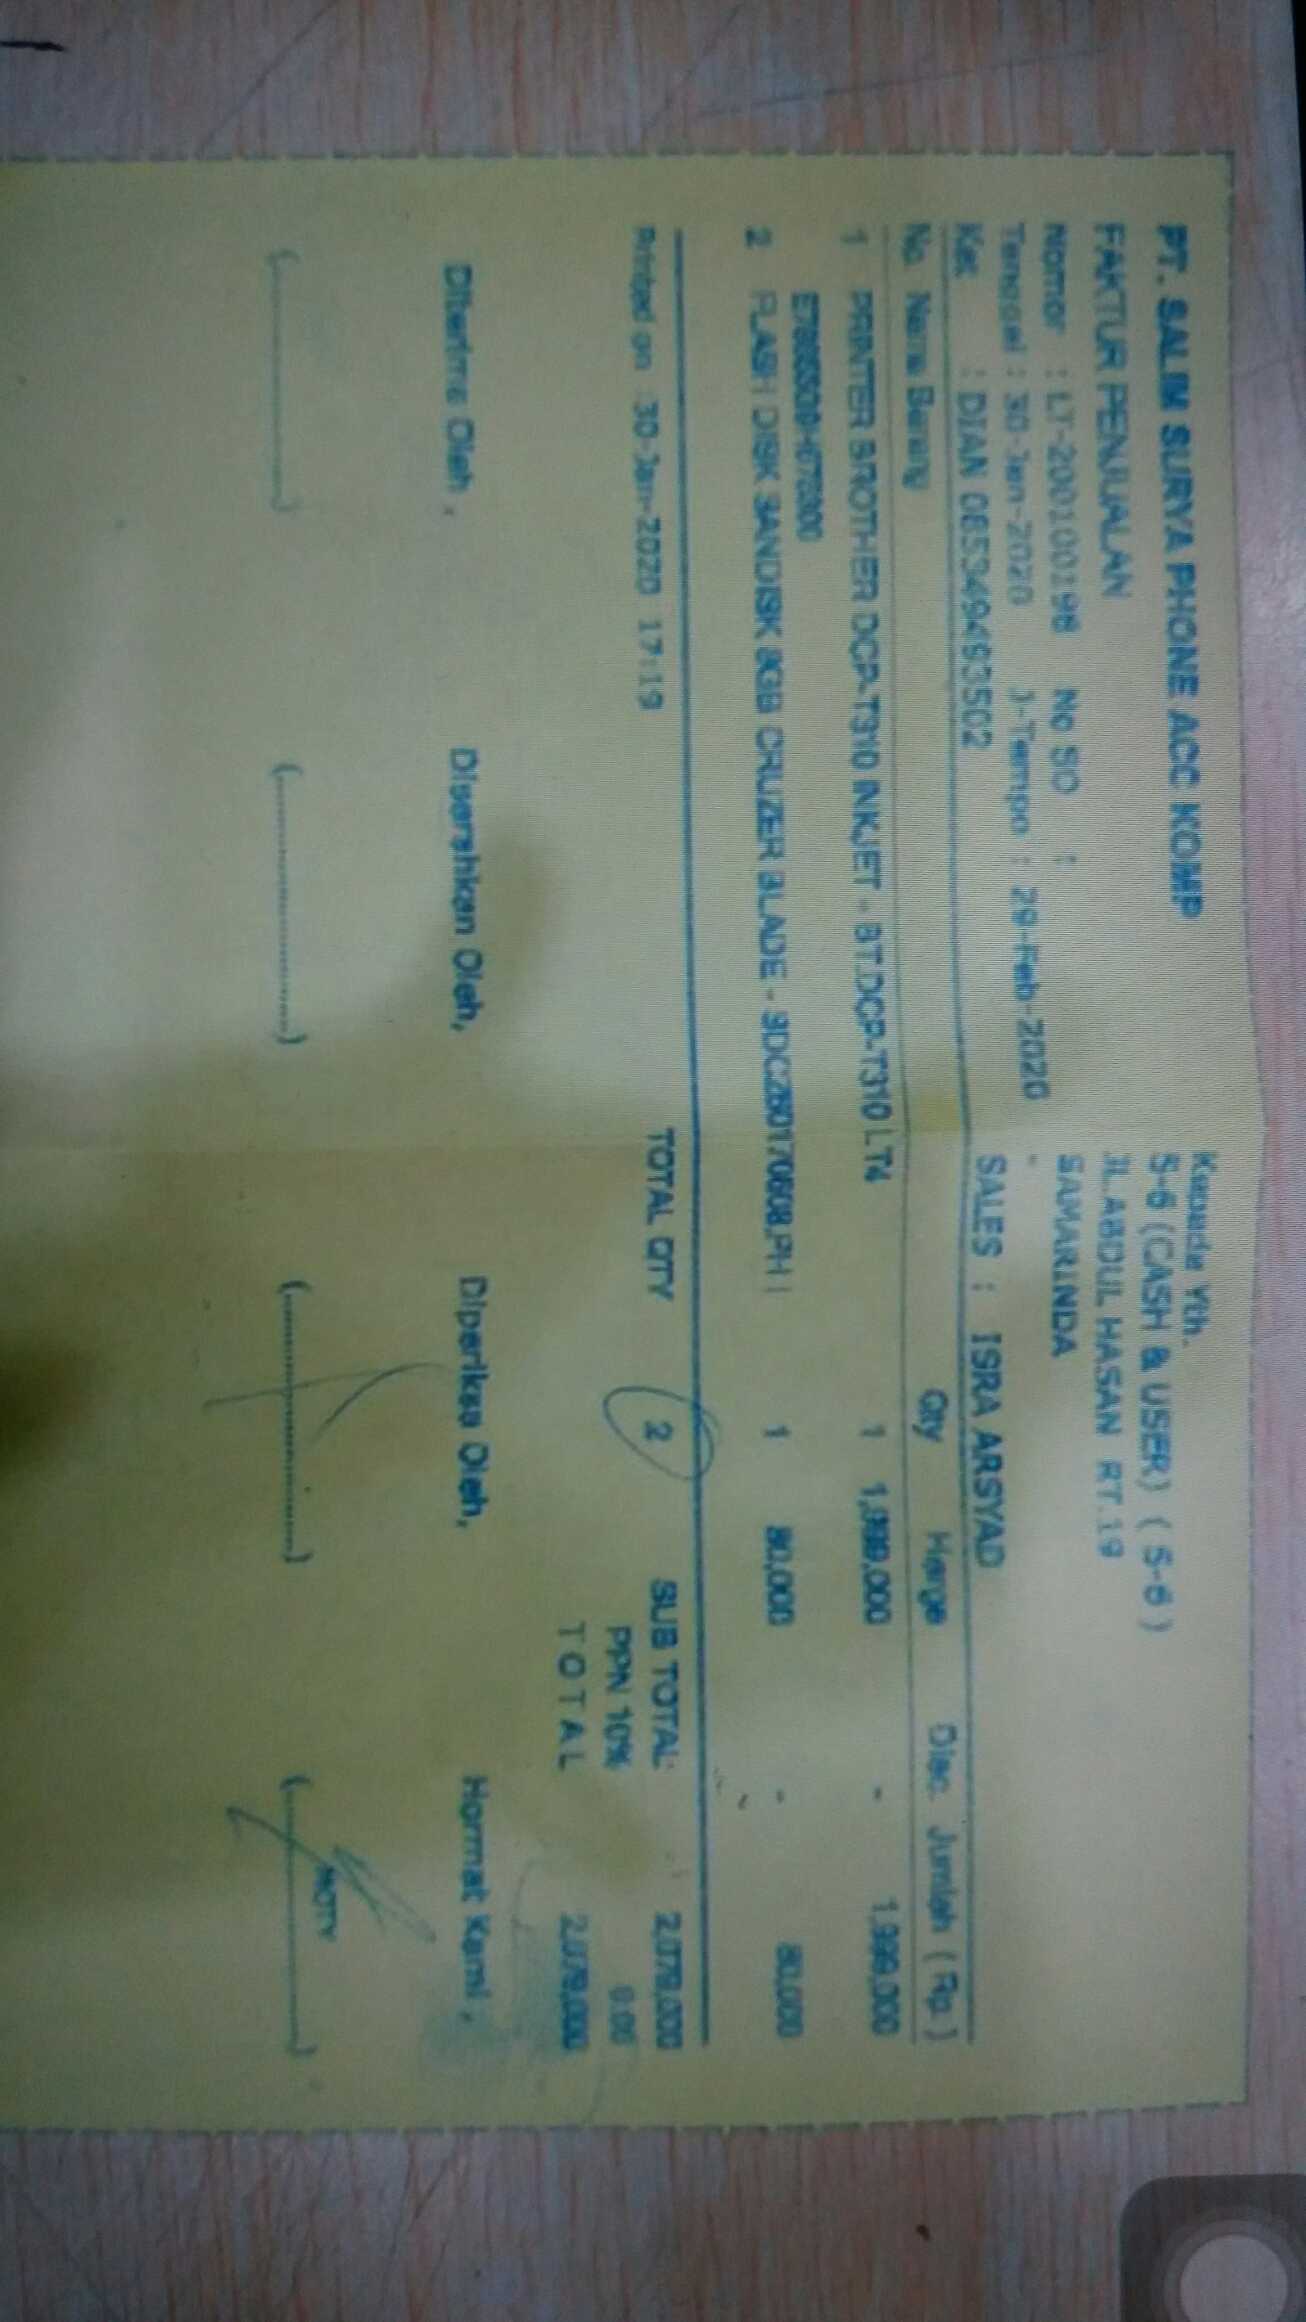 PT. SALIM SURYA PHONE ACC KOMP
FAKTUR PENJUALAN
Nomor : LT-200100198 No SO :
Tanggal : 30-Jan-2020 J-Tempo : 29-Feb-2020
Ket : DIAN 085349493502
Kepada Yth.
S-6 (CASH & USER) ( S-6 )
JL.ABDUL HASAN RT.19
SAMARINDA
-
SALES : ISRA ARSYAD
No. Nama Barang Qty Harga Disc. Jumlah ( Rp. )
1 PRINTER BROTHER DCP-T310 INKJET - BT.DCP-T310 LT4 1 1,999,000 - 1,999,000
2 FLASH DISK SANDISK 8GB CRUZER BLADE - 1 80,000 - 80,000
Printed on 30-Jan-2020 17:19 TOTAL QTY 2 SUB TOTAL 2,079,000
PPN 10% 0.00
T O T A L 2,079,000
Diterima Oleh , Diserahkan Oleh, Diperiksa Oleh, Hormat Kami ,
NOTY
(..................) (..................) (..................) (..................)